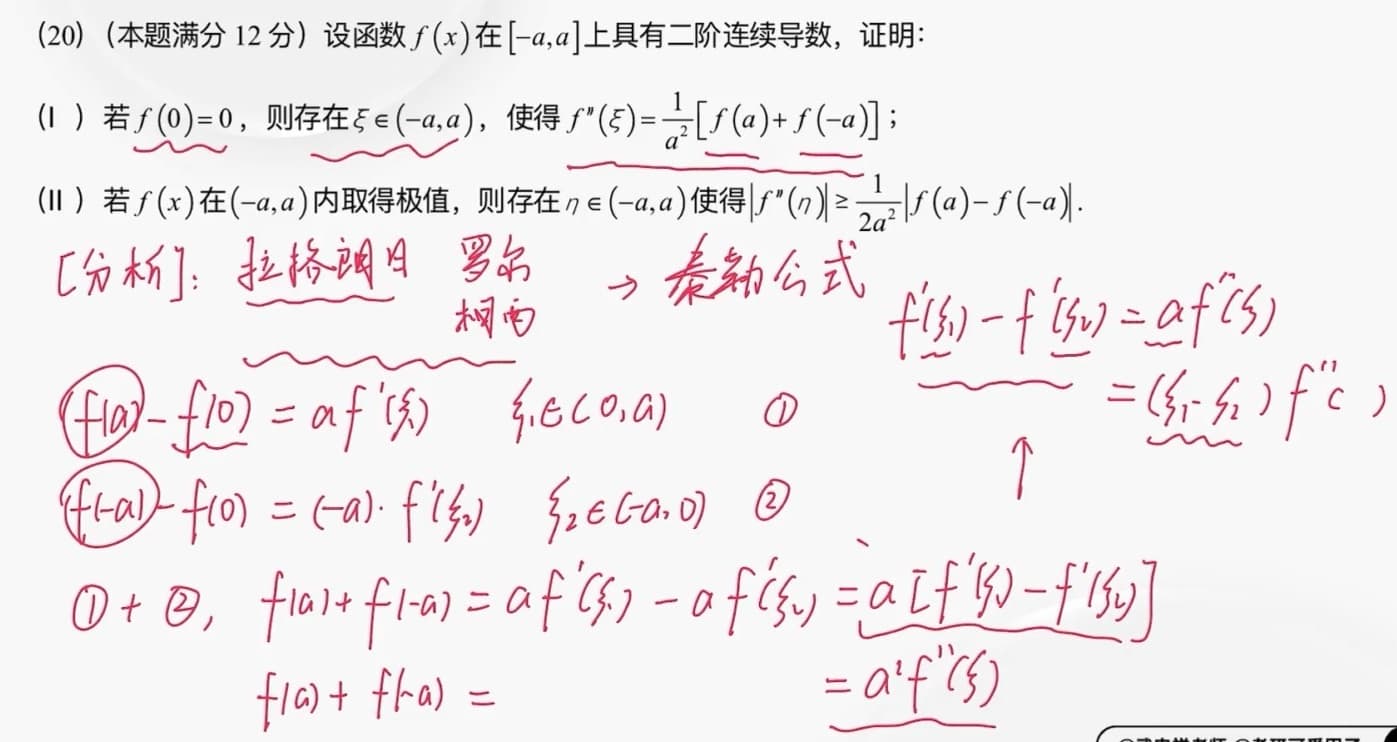 (20)（本题满分 12 分）设函数 f(x) 在 [-a,a] 上具有二阶连续导数，证明：
(Ⅰ) 若 f(0)=0，则存在 ξ∈(-a,a)，使得 f″(ξ)=1/a²[f(a)+f(-a)]；
(Ⅱ) 若 f(x) 在 (-a,a) 内取得极值，则存在 η∈(-a,a) 使得 |f″(η)|≥1/2a²|f(a)-f(-a)|.
[分析]：拉格朗日 罗尔 → 泰勒公式
柯西
f'(ξ₁)-f'(ξ₂)=af″(ξ)
=(ξ₁-ξ₂)f″( )
f(a)-f(0)=af'(ξ₁) ξ₁∈(0,a) ①
↑
f(-a)-f(0)=(-a)·f'(ξ₂) ξ₂∈(-a,0) ②
①+②, f(a)+f(-a)=af'(ξ₁)-af'(ξ₂)=a[f'(ξ₁)-f'(ξ₂)]
f(a)+f(-a)= =a²f″(ξ)